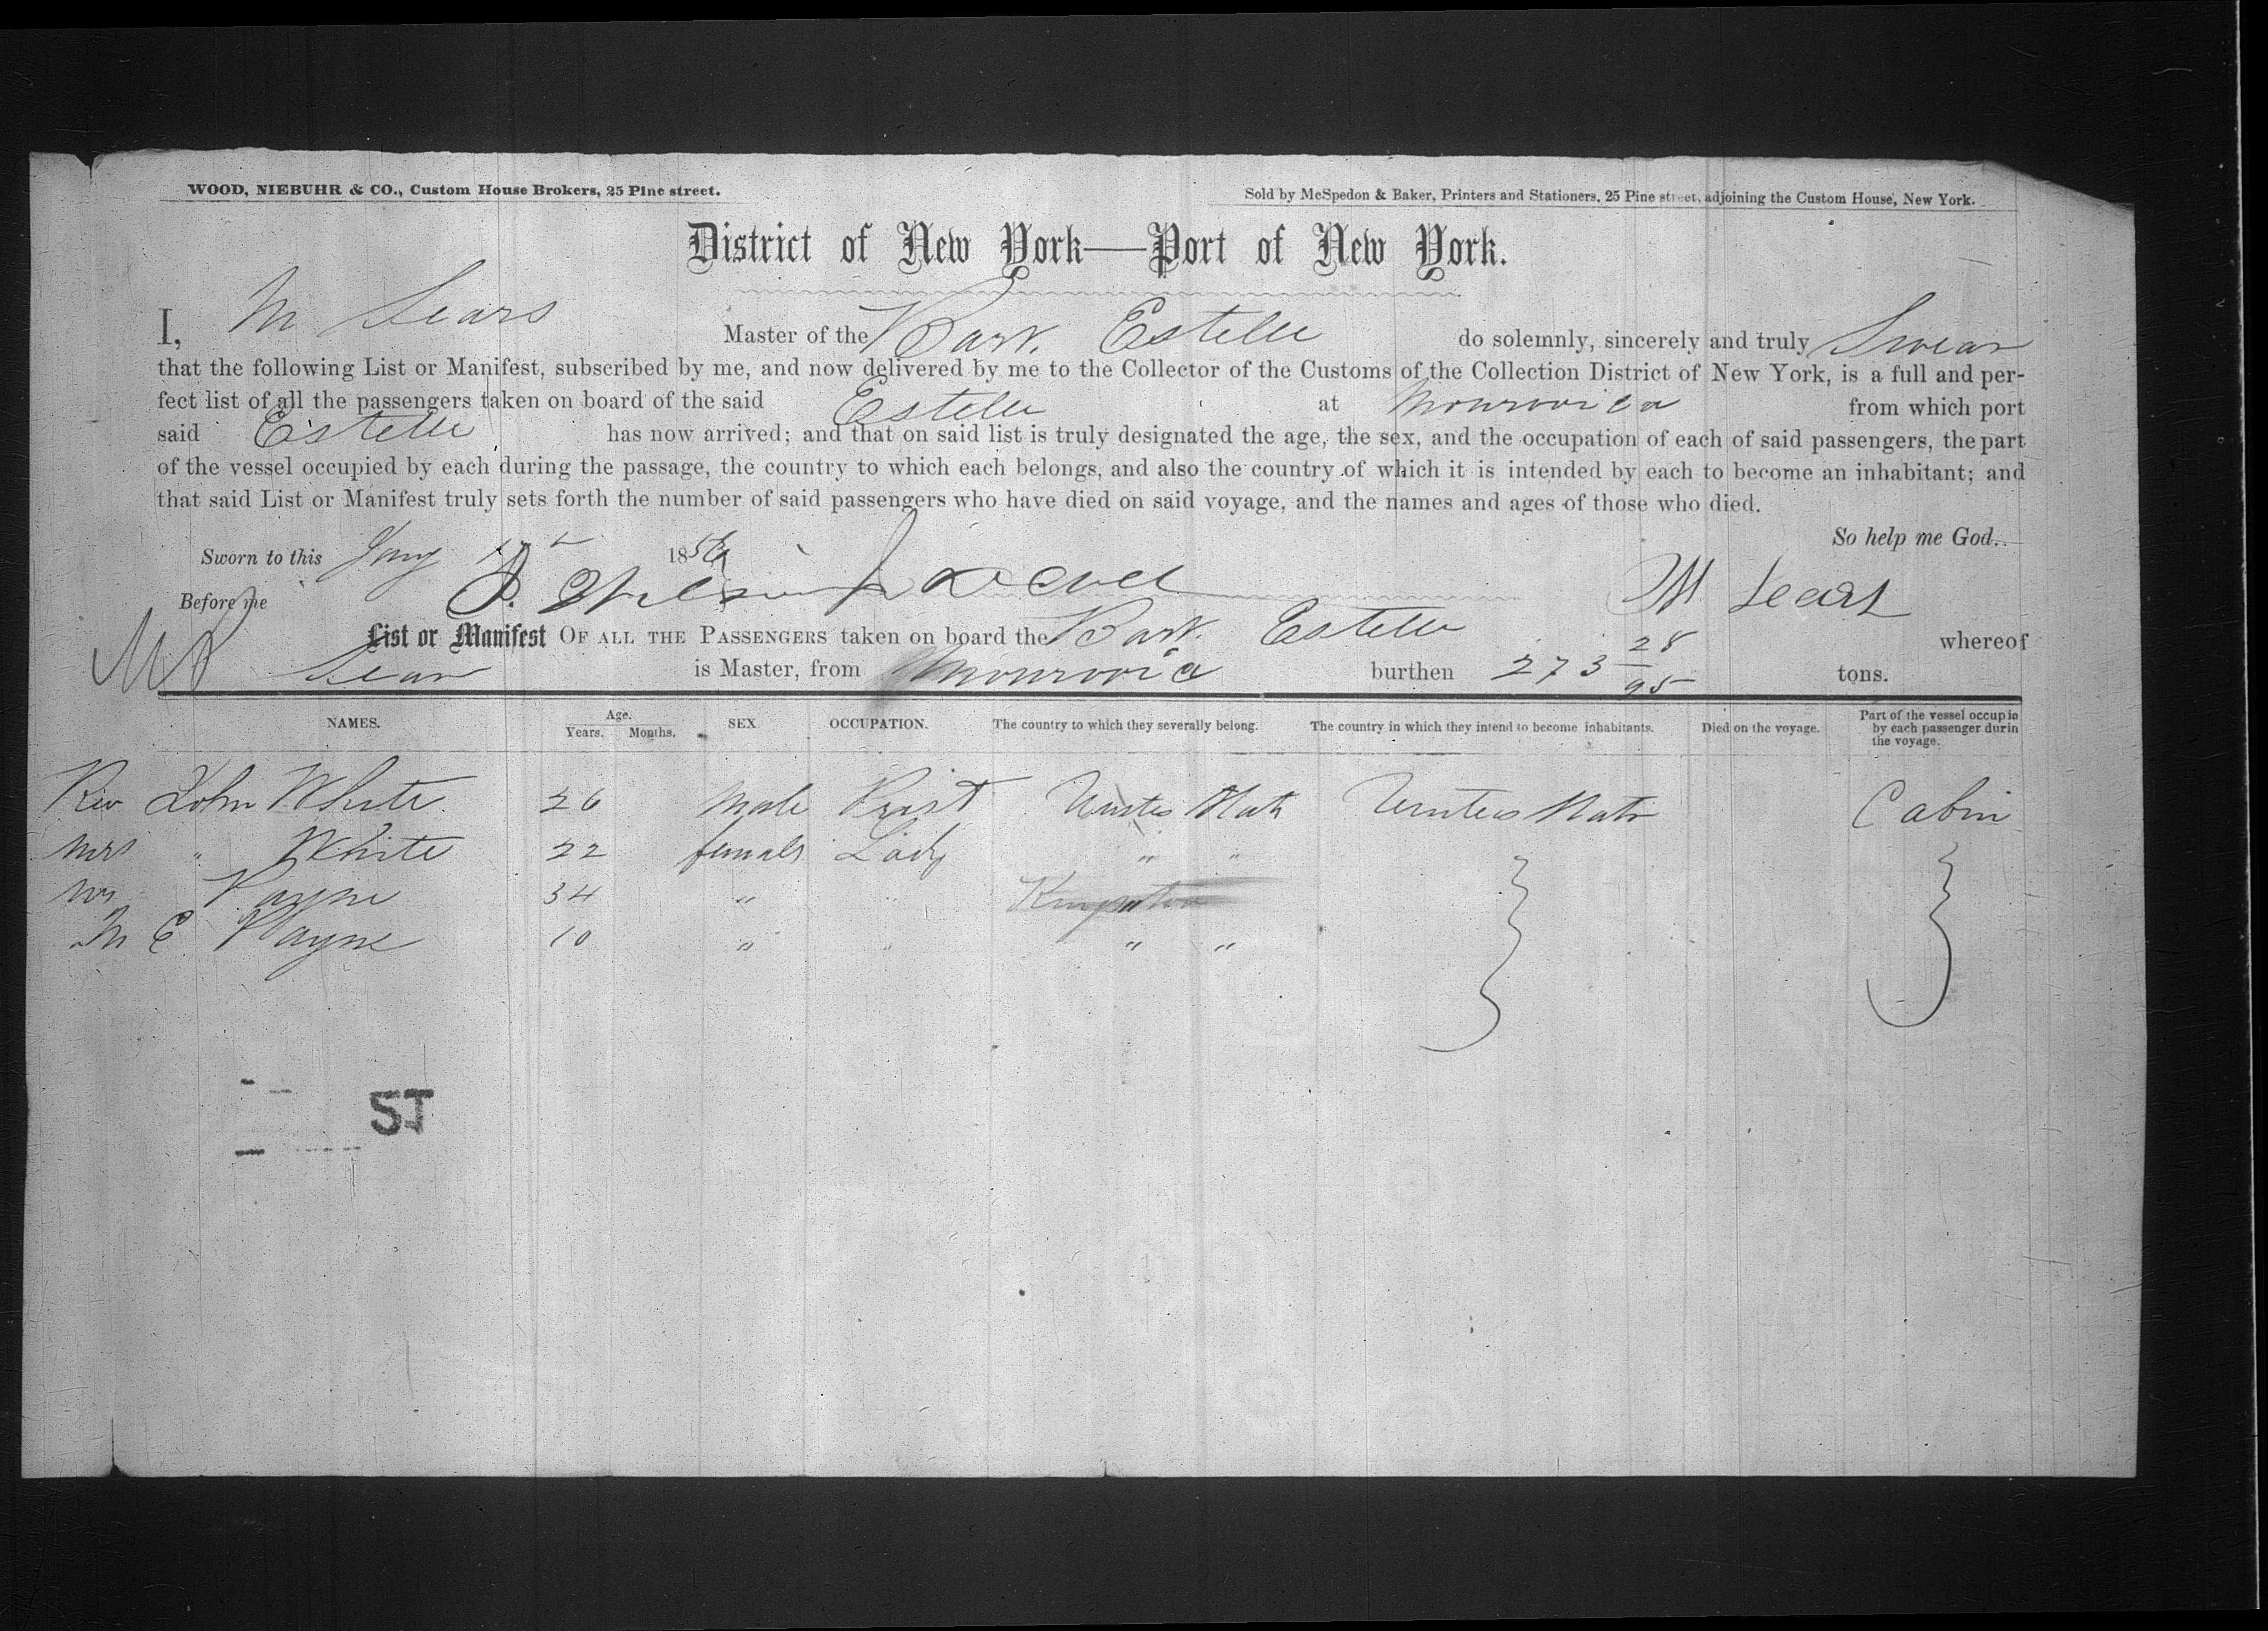 WOOD, NIEBUHR & CO., Custom House Brokers, 25 Pine street.
Sold by McSpedon & Baker, Printers and Stationers, 25 Pine street, adjoining the Custom House, New York.
District of New York—Port of New York.
I, M Sears Master of the Bark Estelle do solemnly, sincerely and truly Swear
that the following List or Manifest, subscribed by me, and now delivered by me to the Collector of the Customs of the Collection District of New York, is a full and per-
fect list of all the passengers taken on board of the said Estelle at Monrovia from which port
said Estelle has now arrived; and that on said list is truly designated the age, the sex, and the occupation of each of said passengers, the part
of the vessel occupied by each during the passage, the country to which each belongs, and also the country of which it is intended by each to become an inhabitant; and
that said List or Manifest truly sets forth the number of said passengers who have died on said voyage, and the names and ages of those who died.
So help me God.
Sworn to this Jany 185
Before me M Sears
List or Manifest OF ALL THE PASSENGERS taken on board the Bark Estelle whereof
Sears is Master, from Monrovia burthen 273 28/95 tons.
NAMES. Age. Years. Months. SEX OCCUPATION. The country to which they severally belong. The country in which they intend to become inhabitants. Died on the voyage. Part of the vessel occupie by each passenger durin the voyage.
Rev John White 26 Male Prist United Stats United Stats Cabin
Mrs " White 22 female Lady " "
Mrs Payne 34 " " Kingston
M E Payne 10 " " " "
ST